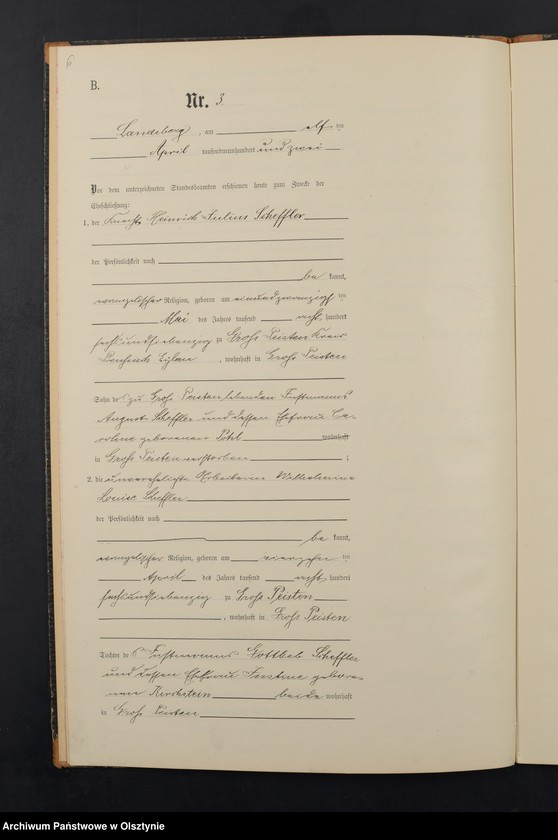 B.
Nr. 3
Landsberg, am elf ten
April tausendneunhundert und zwei
Vor dem unterzeichneten Standesbeamten erschienen heute zum Zwecke der
Eheschließung:
1. der Knecht Heinrich Julius Scheffler
der Persönlichkeit nach
be kannt,
evangelischer Religion, geboren am einundzwanzigs ten
Mai des Jahres tausend acht hundert
sechsundsiebenzig zu Groß Peisten Kreis
Preußisch Eylau, wohnhaft in Groß Peisten
Sohn des zu Groß Peisten lebenden Instmanns
August Scheffler und dessen Ehefrau Ca-
roline geborenen Pohl wohnhaft
in Groß Peisten verstorben ;
2. die unverehelichte Arbeiterin Wilhelmine
Louise Scheffler
der Persönlichkeit nach
be kannt,
evangelischer Religion, geboren am vierzehn ten
April des Jahres tausend acht hundert
sechsundsiebenzig zu Groß Peisten
, wohnhaft in Groß Peisten
Tochter des Instmanns Gottlieb Scheffler
und dessen Ehefrau Justine gebore-
nen beide wohnhaft
in Groß Peisten
Archiwum Państwowe w Olsztynie